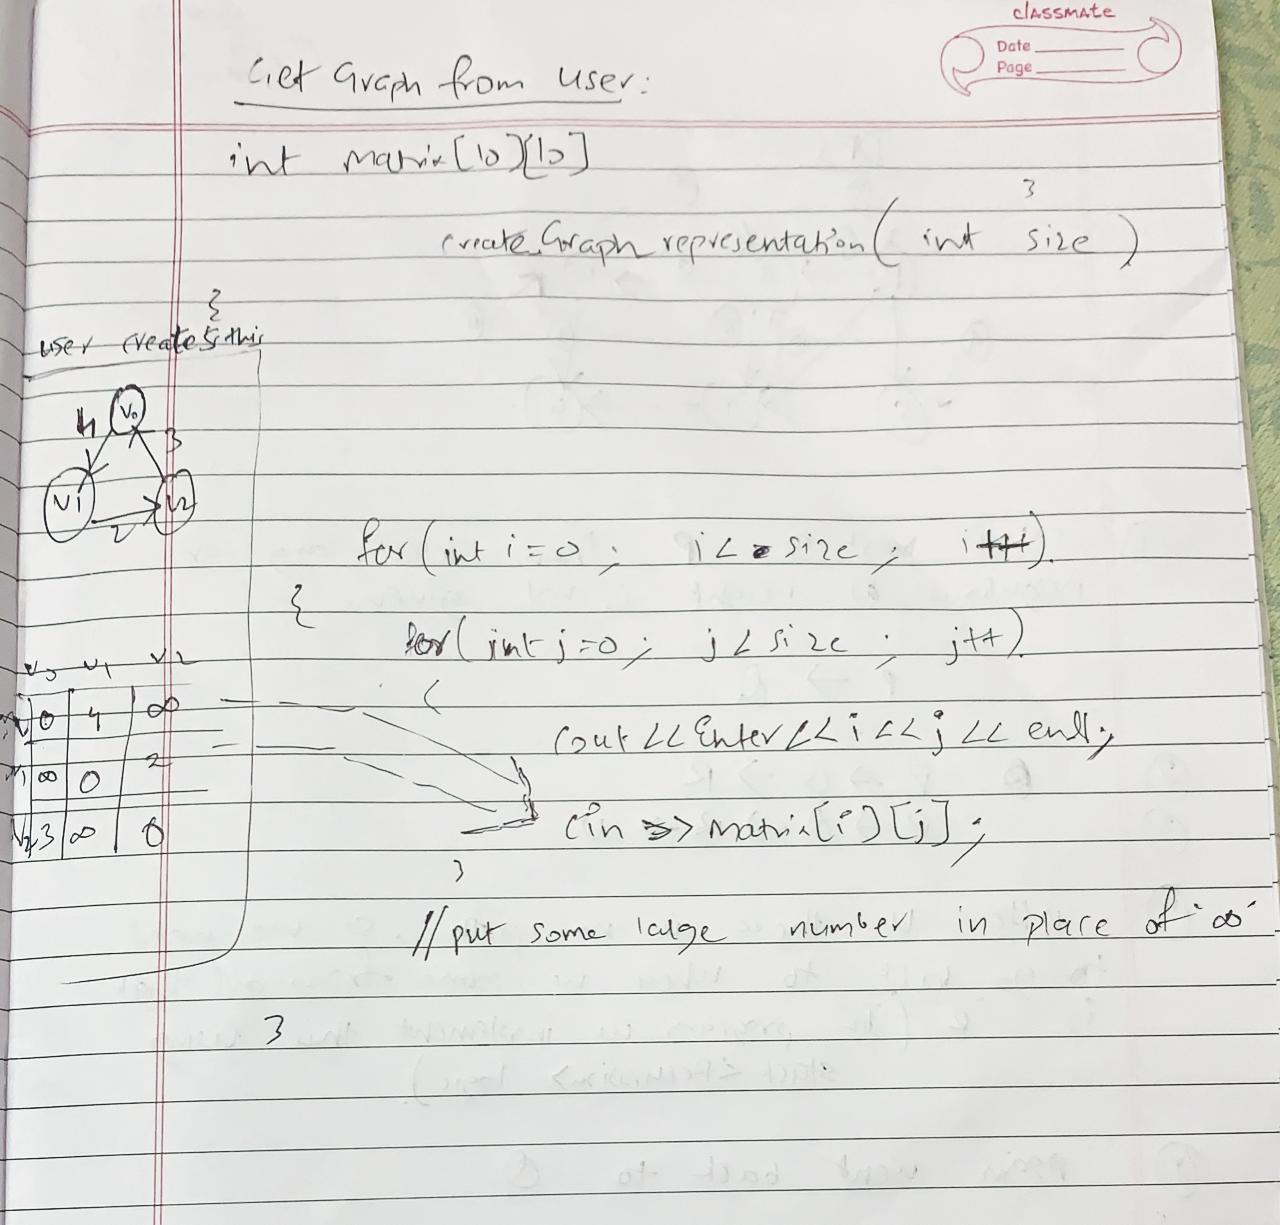 classmate
Date
Page
Get Graph from user:
int matrix[10][10]
3
create Graph representation( int size )
{
user creates this
V0
4
3
V1
V2
2
for(int i=0 ; i< size ; i++)
{
for( int j=0 ; j < size ; j++)
V0 V1 V2
V0 0 4 ∞
{
cout <<Enter<<i<<j<< endl;
V1 ∞ 0 2
cin >> matrix[i][j];
V2 3 ∞ 0
}
//put some large number in place of '∞'
}